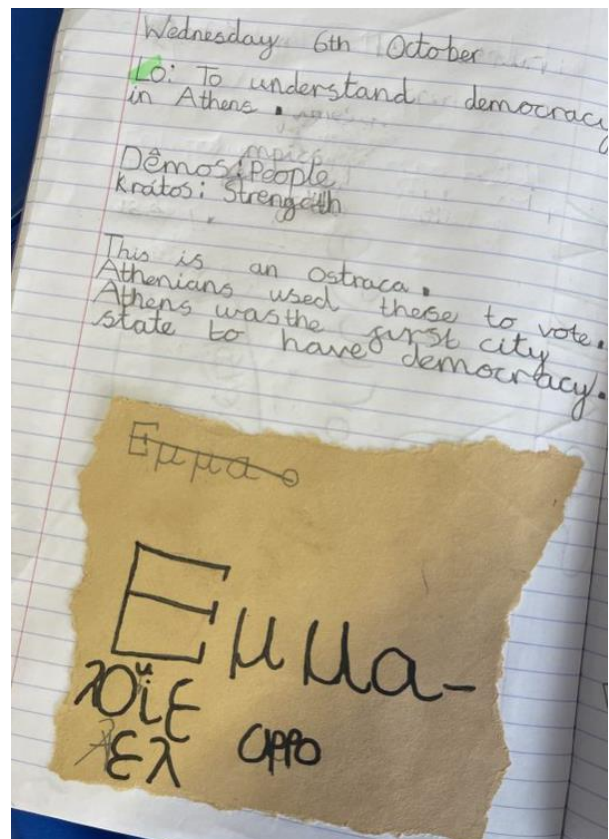 Wednesday 6th October
Lo: To understand democracy
in Athens.
Dêmos: People
Krátos: Strength
This is an ostraca.
Athenians used these to vote.
Athens was the first city
state to have democracy.
Εμμα
Εμμα-
λοιε
ελ